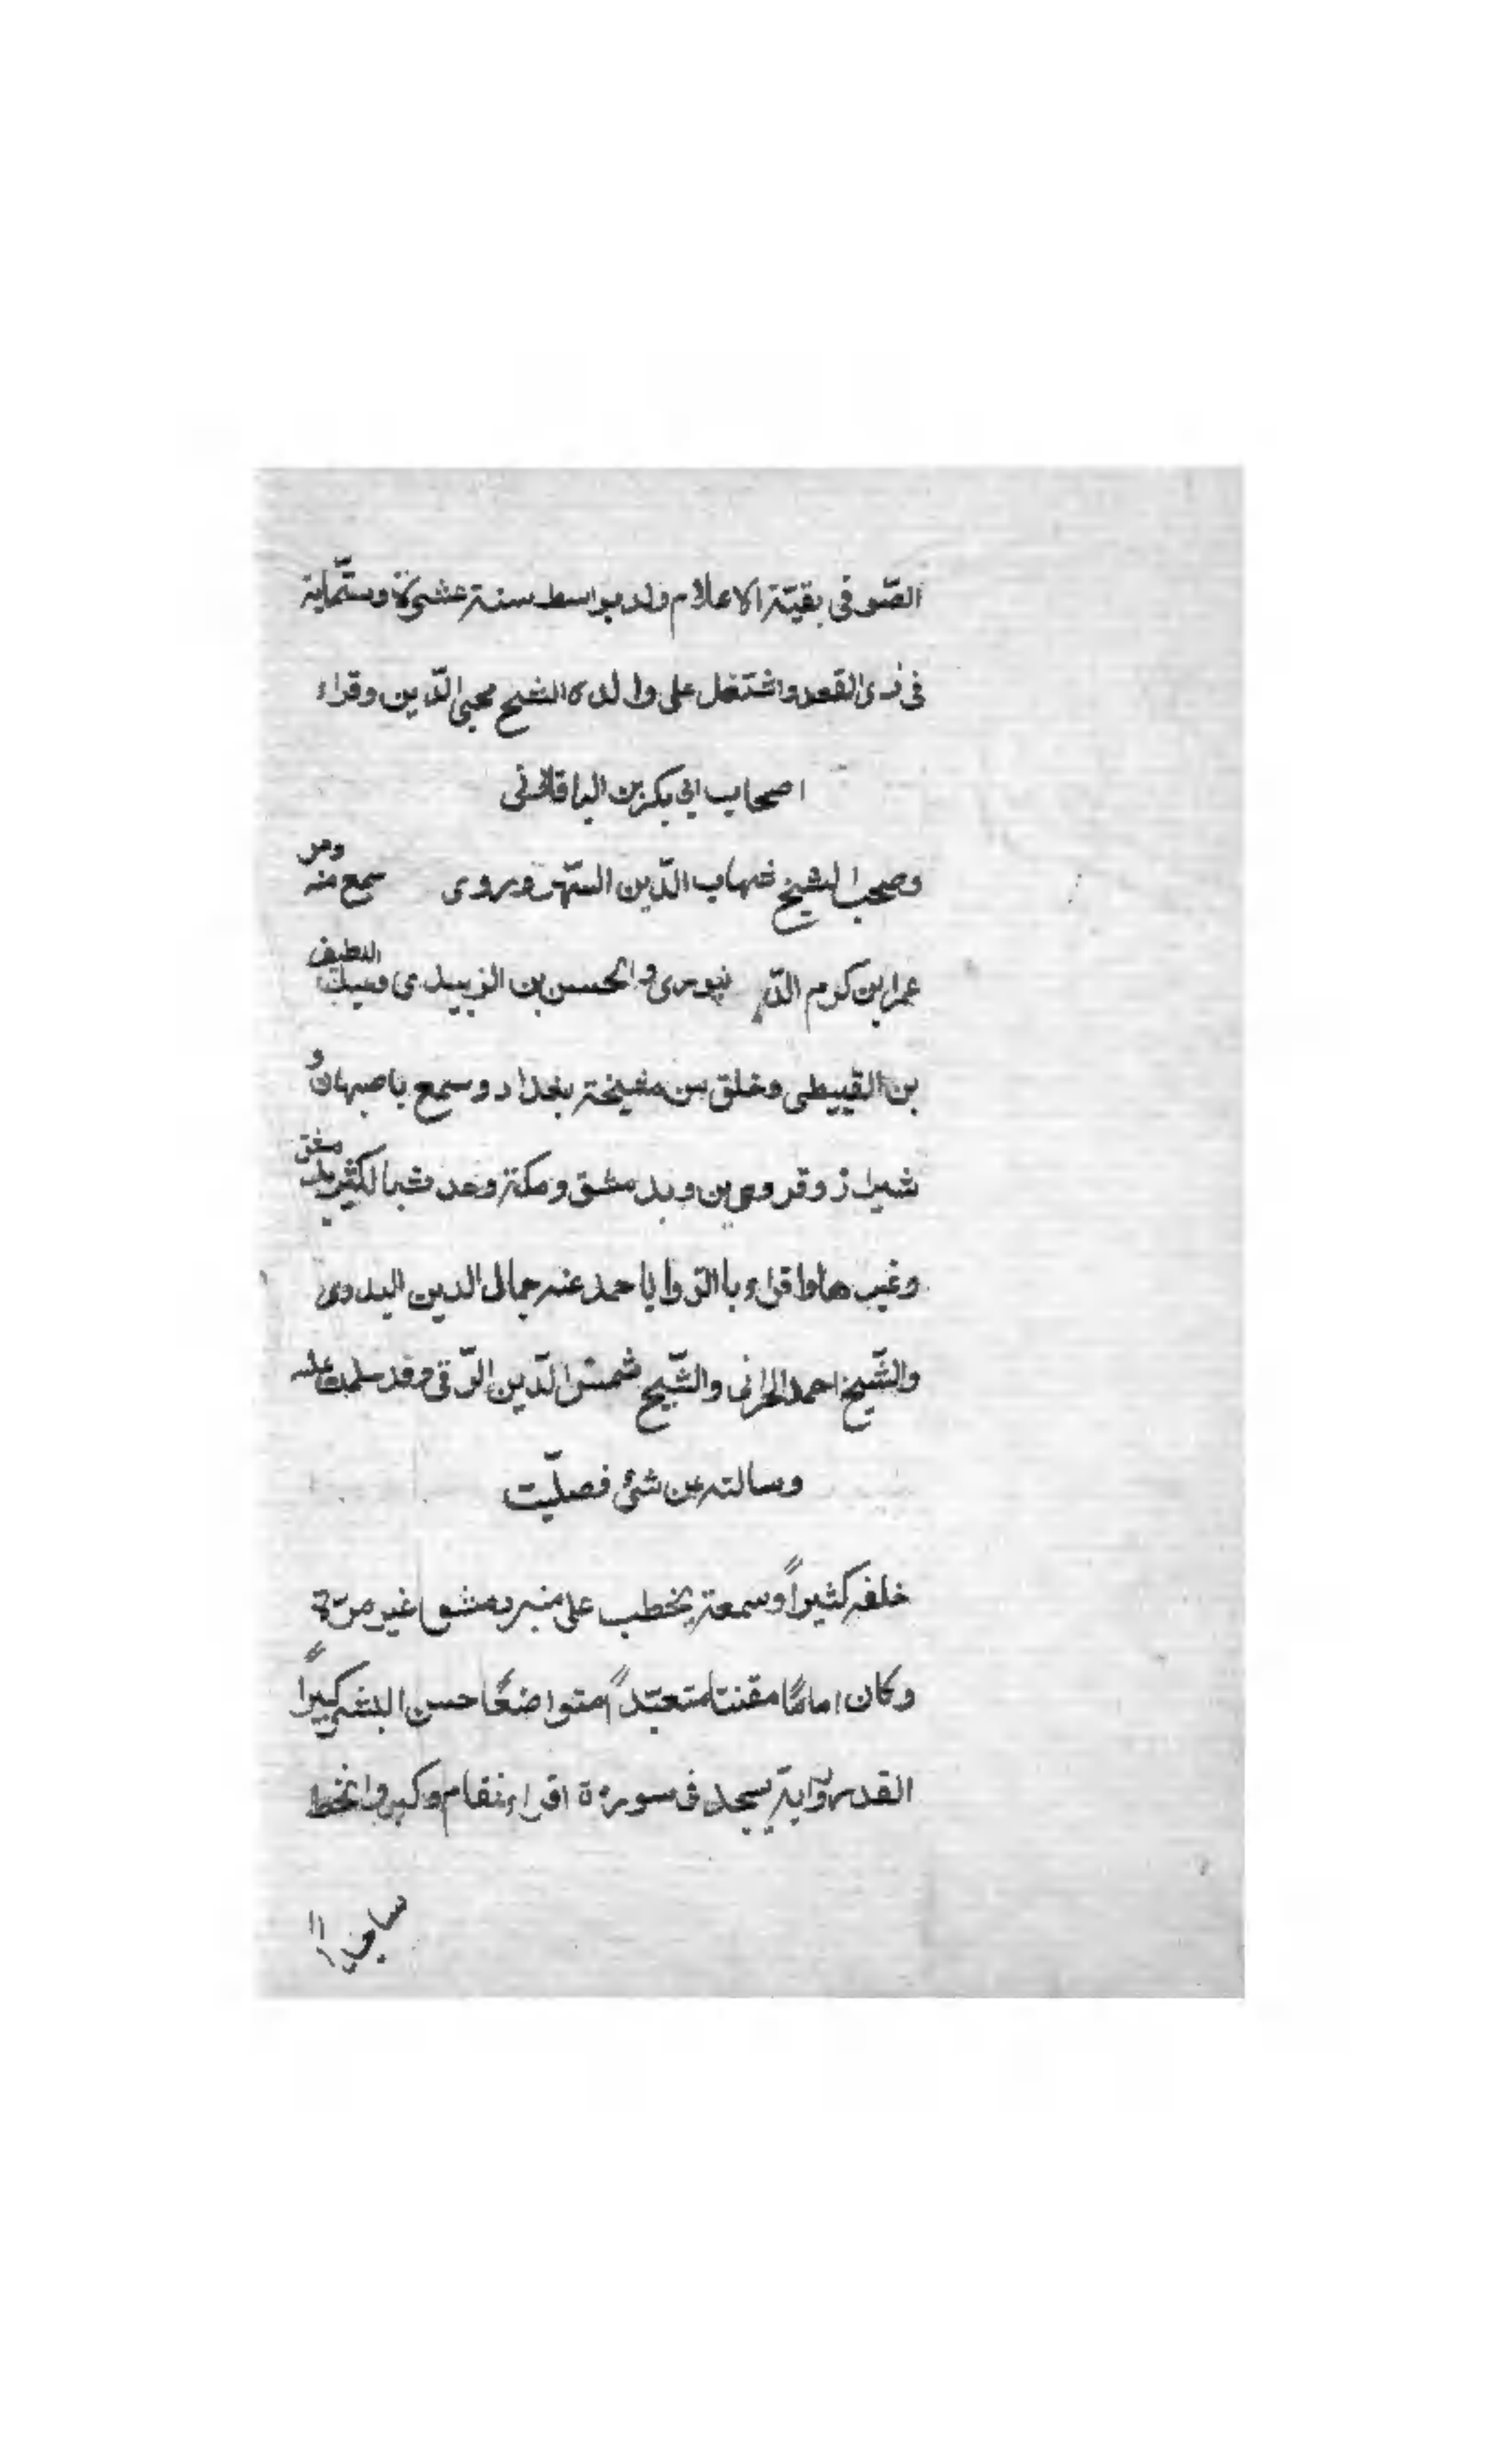 الصّوفى بقيّة الاعلام ولد بواسط سنة عشرة وستّماية
فى ذى القعد واشتغل على والده الشيخ محيى الدّين وقراء
اصحاب ابى بكر بن الباقلانى
وصحب الشيخ شهاب الدّين السّهروروى سمع منه ومن
عمر ابن كرم الدّينورى والحسن بن الزبيدى وعبد اللطيف
بن القبيطى وخلق من مشيخة بغداد وسمع باصبهان و
شيراز وقروين وبدمشق ومكة وحدث بالكثير بدمشق
وغيرها واقراء بالروايا حمد عنه جمال الدين البدوى
والشّيخ احمد الحرانى والشّيخ شمس الدّين الرّقى وقد سلمت عليه
وسالته عن شئ فصلّيت
خلفه كثيراً وسمعته يخطب على منبر دمشق غير مرّة
وكان اماما مقنتا متعبّداً متواضعًا حسن البشر كبيراً
القدر رايته يسجد فى سورة اقراء فقام وكبر وانحط
ساجداً